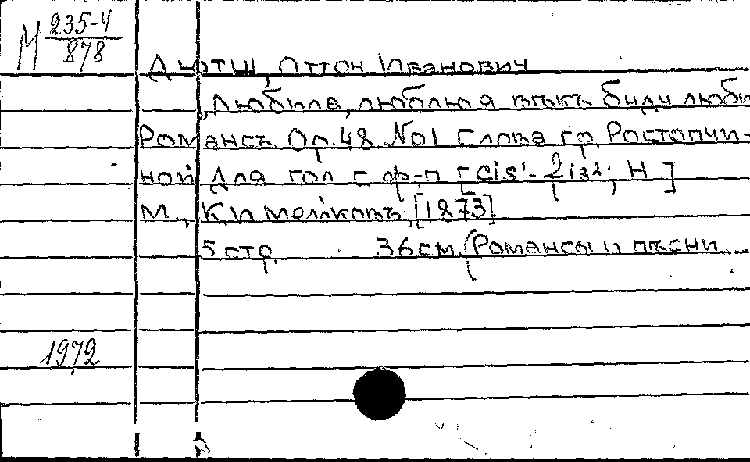 М 235-4
878
Дютш, Оттон Иванович
Любила, люблю я векъ буду люби
Романсъ Op. 48 No1 Слова гр. Ростопчи-
ной Для гол с ф-п [cis'-fis²; H]
М., К.И. Мейковъ, [1873]
5 стр. 36 см. (Романсы и песни
1972